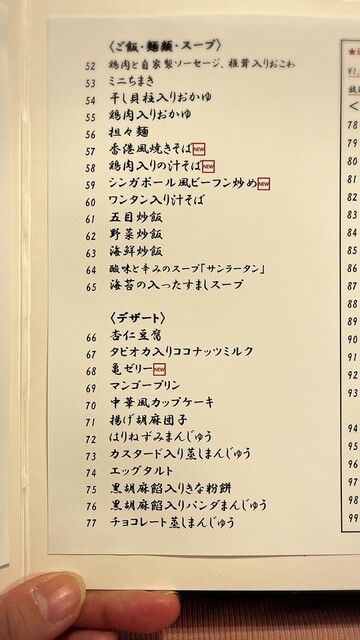 〈ご飯・麺類・スープ〉
52 鶏肉と自家製ソーセージ、椎茸入りおこわ
53 ミニちまき
54 干し貝柱入りおかゆ
55 鶏肉入りおかゆ
56 担々麺
57 香港風焼きそば NEW
58 鶏肉入りの汁そば NEW
59 シンガポール風ビーフン炒め NEW
60 ワンタン入り汁そば
61 五目炒飯
62 野菜炒飯
63 海鮮炒飯
64 酸味と辛みのスープ「サンラータン」
65 海苔の入ったすましスープ
〈デザート〉
66 杏仁豆腐
67 タピオカ入りココナッツミルク
68 亀ゼリー NEW
69 マンゴープリン
70 中華風カップケーキ
71 揚げ胡麻団子
72 はりねずみまんじゅう
73 カスタード入り蒸しまんじゅう
74 エッグタルト
75 黒胡麻餡入りきな粉餅
76 黒胡麻餡入りパンダまんじゅう
77 チョコレート蒸しまんじゅう
78
79
80
81
82
83
84
85
86
87
88
89
90
91
92
93
94
95
96
97
98
99